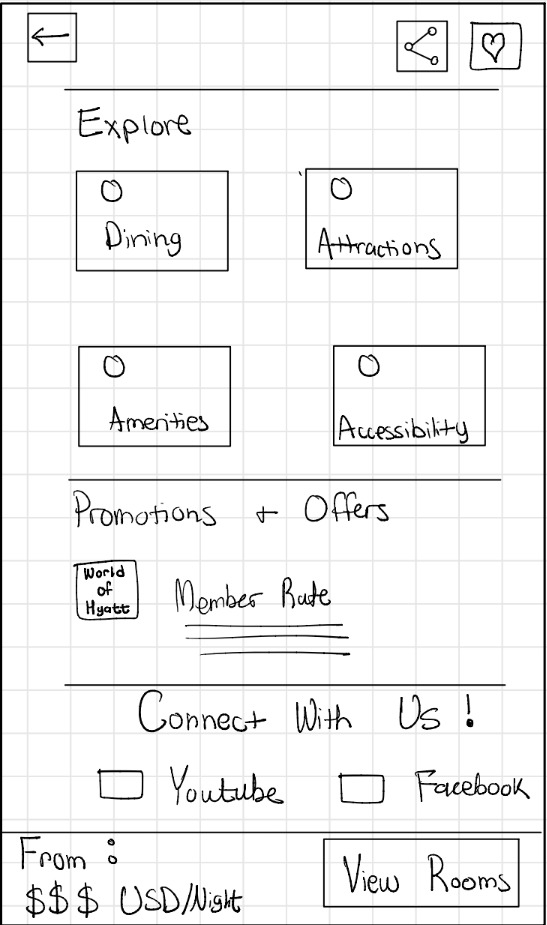 Explore
Dining
Attractions
Amenities
Accessibility
Promotions + Offers
World
of
Hyatt
Member Rate
Connect With Us !
Youtube
Facebook
From :
$$$ USD/Night
View Rooms